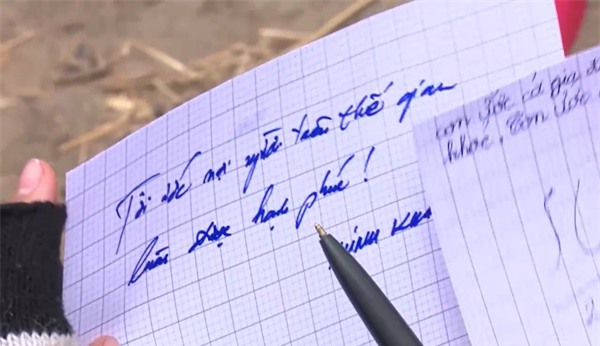 Tôi ước mọi người trên thế gian
luôn được hạnh phúc!
MINH KHA
con ước cả gia đ
khỏe, con ước